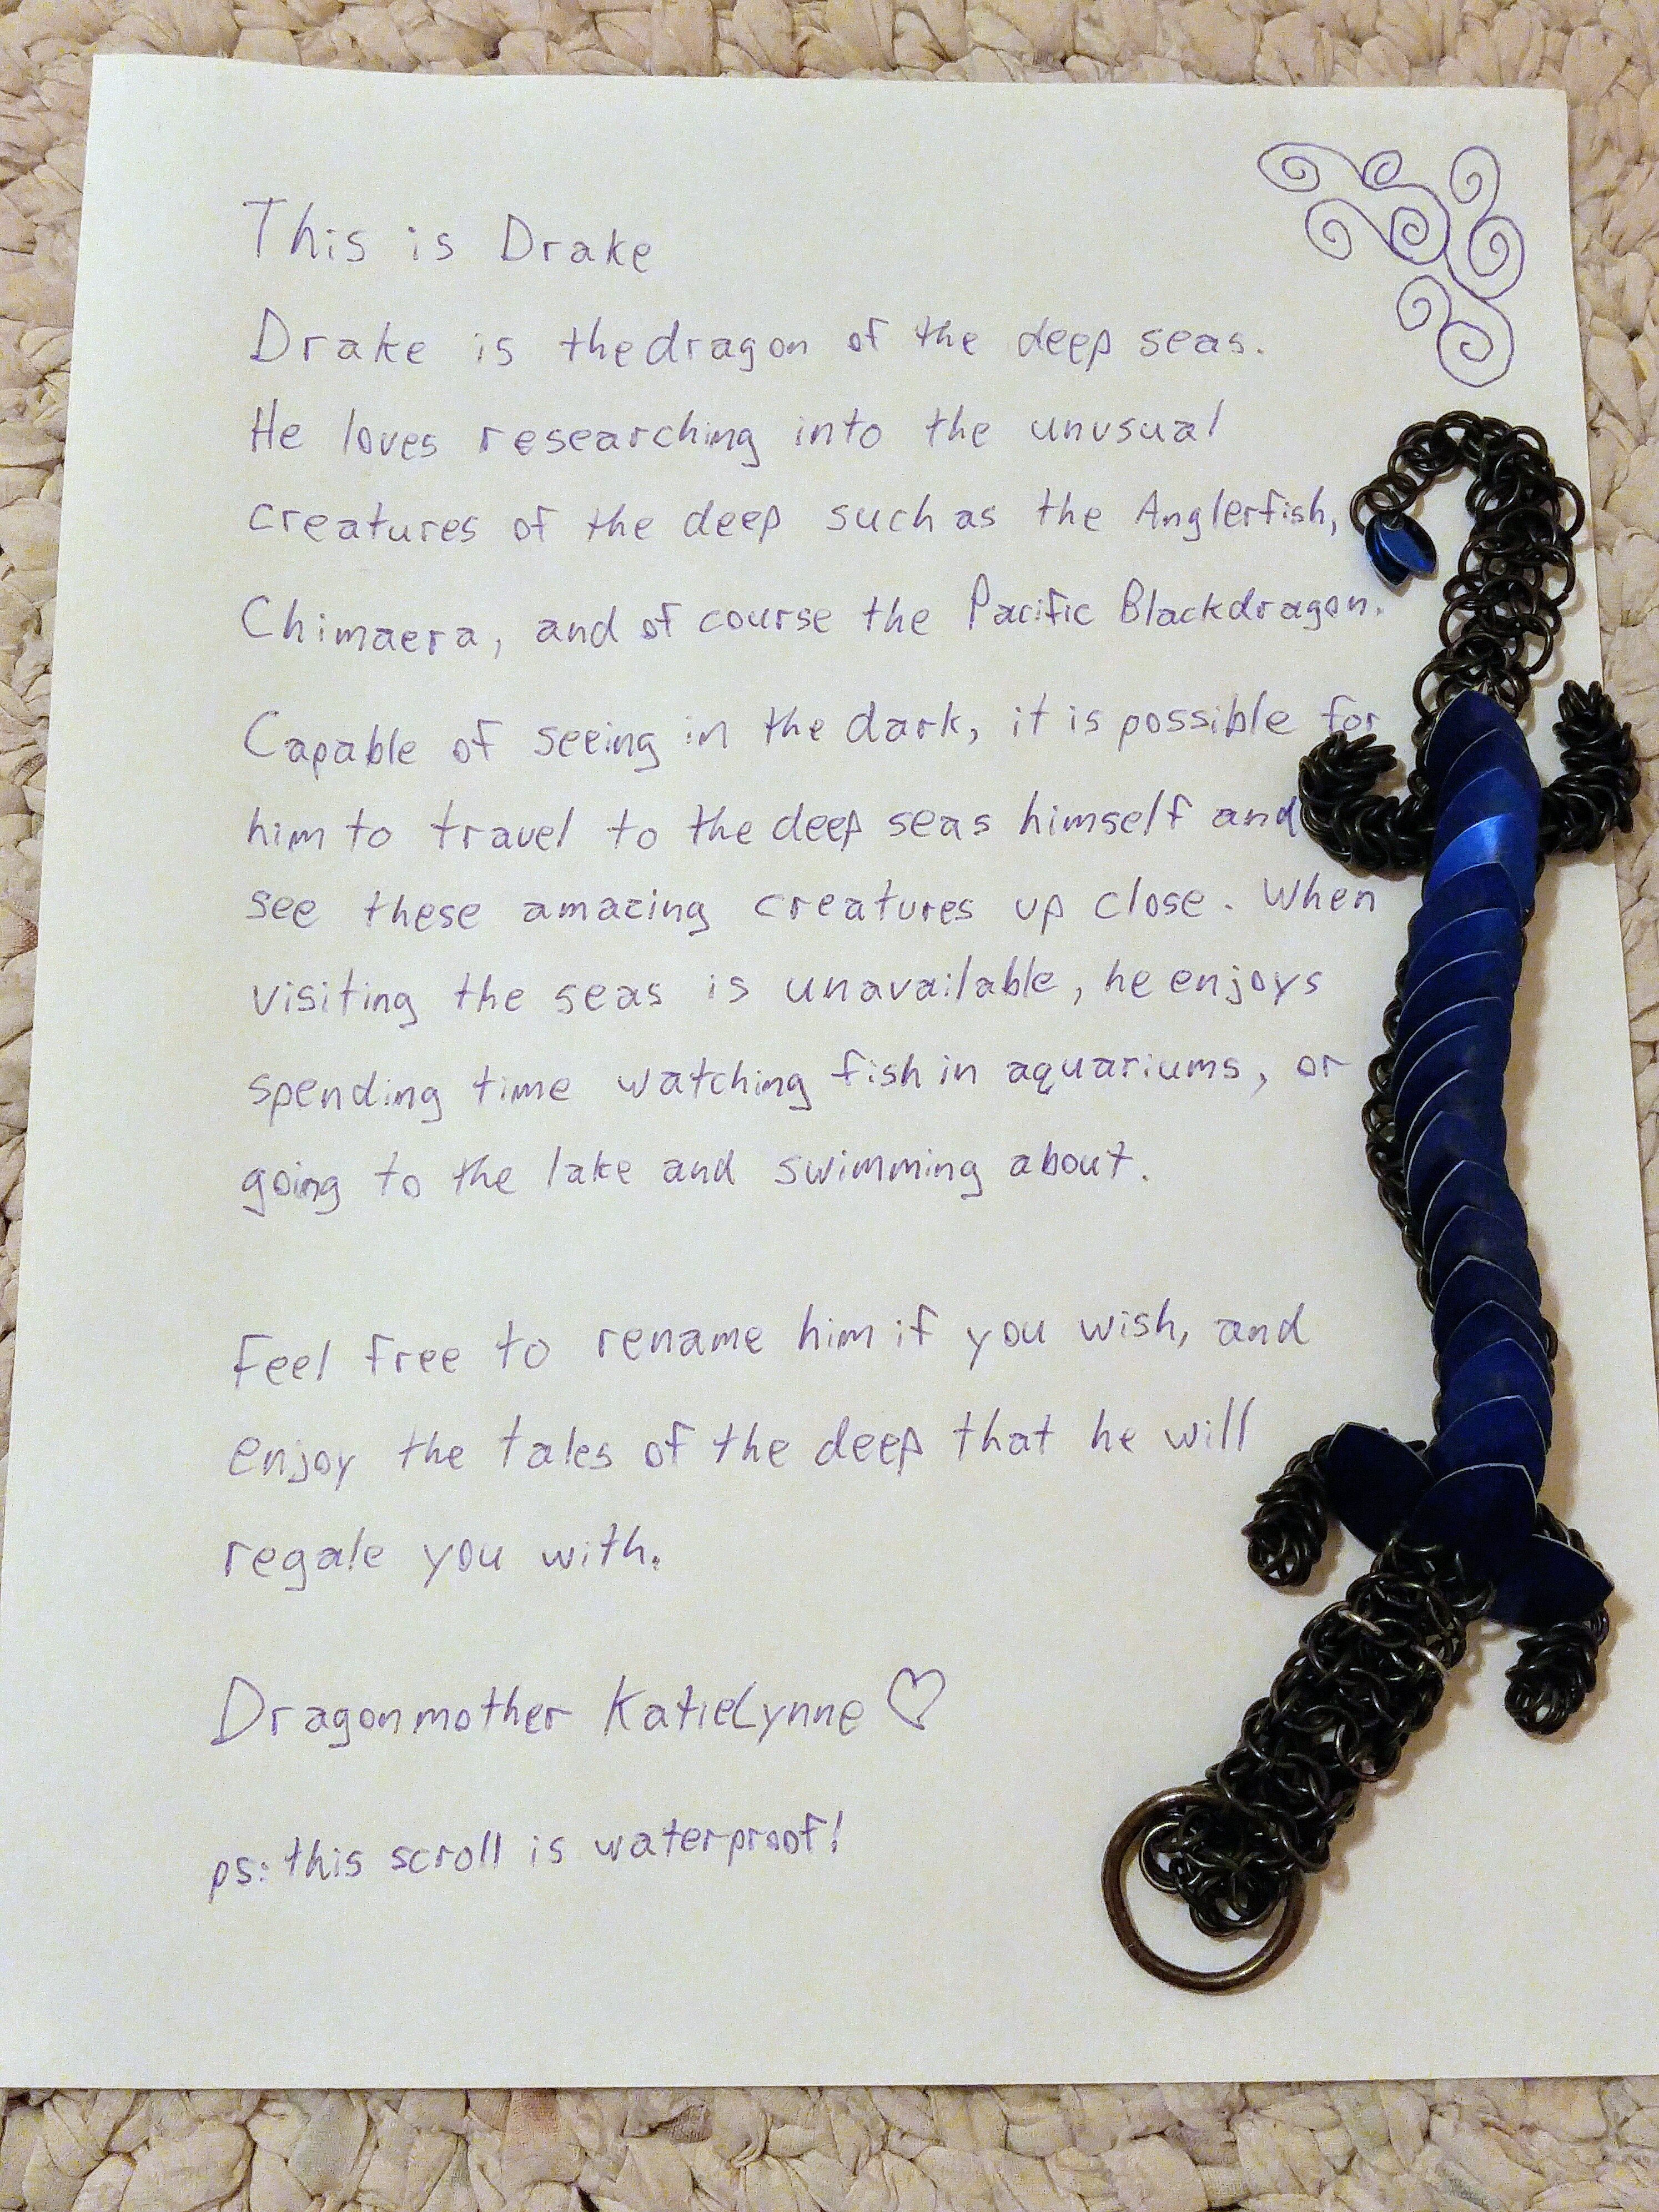 This is Drake
Drake is the dragon of the deep seas.
He loves researching into the unusual
creatures of the deep such as the Anglerfish,
Chimaera, and of course the Pacific Blackdragon.
Capable of seeing in the dark, it is possible for
him to travel to the deep seas himself and
see these amazing creatures up close. When
visiting the seas is unavailable, he enjoys
spending time watching fish in aquariums, or
going to the lake and swimming about.
Feel free to rename him if you wish, and
enjoy the tales of the deep that he will
regale you with.
Dragonmother KatieLynne ♡
ps: this scroll is waterproof!